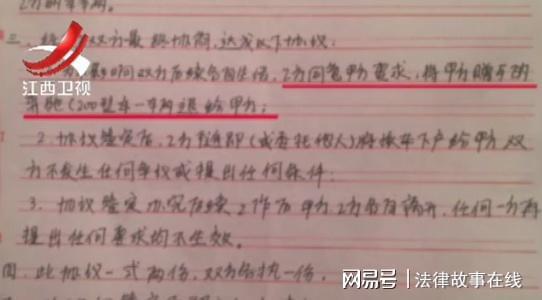 三、经双方最终协商,达成以下协议:
双方后续各自生活,乙方同意甲方要求,将甲方赠予的
奔驰(200型车一辆退给甲方;
2.协议签定后,乙方随即(或委托他人)将该车下户给甲方,双
方不发生任何争议或提出任何条件;
3.协议签定办完后续工作后甲方、乙方各自离开,任何一方再
提出任何要求均不生效。
四.此协议一式两份,双方各执一份,
江西卫视
网易号 法律故事在线